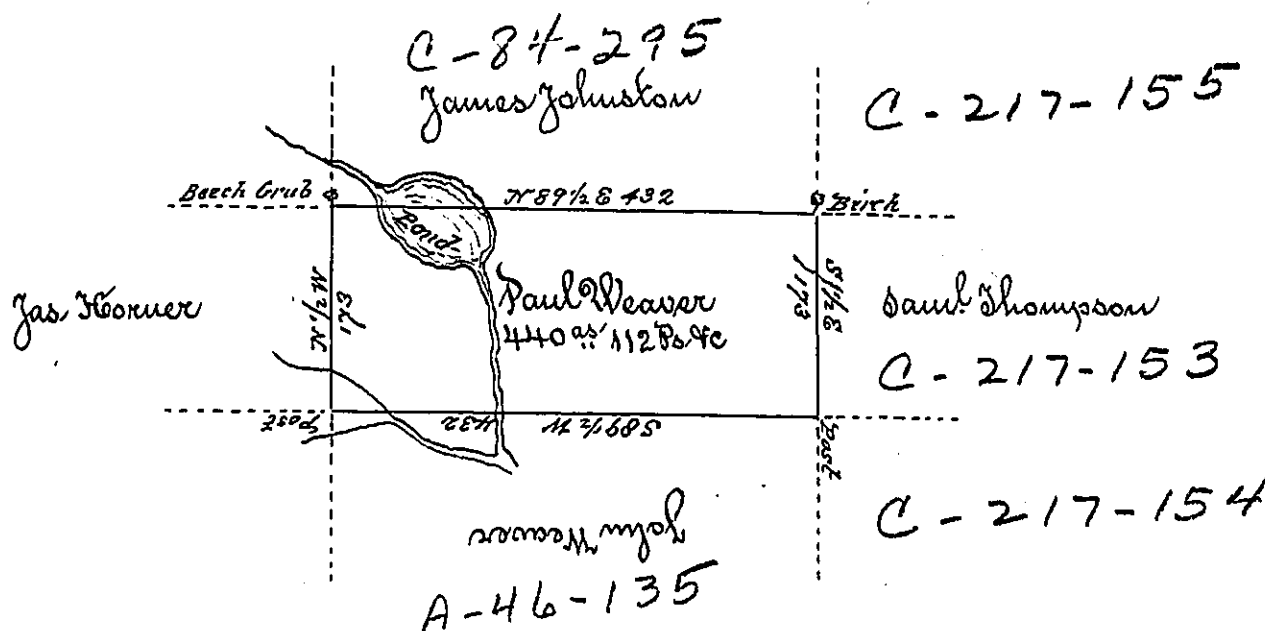 C - 84 - 295
James Johnston
C - 217 - 155
Beech Grub
N 89 1/2 E 432
Birch
Pond
Jas Horner
N 1/2 W
173
Paul Weaver
440 as 112 Ps &c
S 1/2 E
173
Saml. Thompson
C - 217 - 153
Post
432
S 89 1/2 W
Post
C - 217 - 154
John
A - 46 - 135